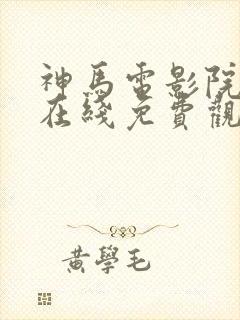 神馬電影院
在綫免費觀
黄學毛